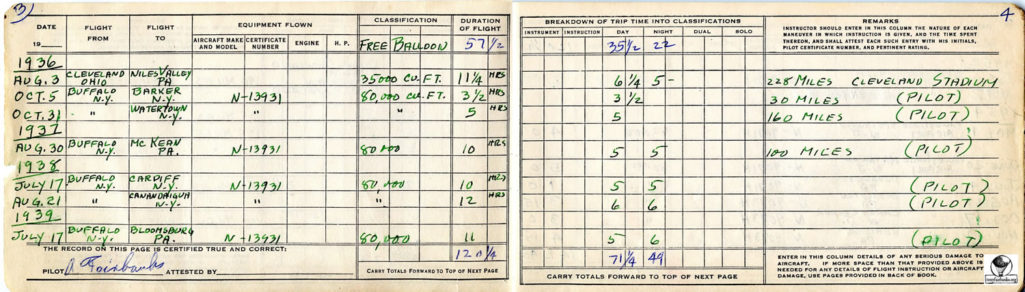 3)
DATE FLIGHT FROM FLIGHT TO EQUIPMENT FLOWN CLASSIFICATION DURATION OF FLIGHT
19 AIRCRAFT MAKE AND MODEL CERTIFICATE NUMBER ENGINE H. P. FREE BALLOON 57 1/2
1936
AUG. 3 CLEVELAND OHIO NILES VALLEY PA. 35000 CU. FT. 11 1/4 HRS
OCT. 5 BUFFALO N.Y. BARKER N.Y. N-13931 80,000 CU. FT. 3 1/2 HRS
OCT. 31 " WATERTOWN N.Y. " " 5 HRS
1937
AUG. 30 BUFFALO N.Y. MC KEAN PA. N-13931 80,000 10 HRS
1938
JULY 17 BUFFALO N.Y. CARDIFF N.Y. N-13931 80,000 10 HRS
AUG. 21 " CANANDAIGUA N.Y. " " 12 HRS
1939
JULY 17 BUFFALO N.Y. BLOOMSBURG PA. N-13931 80,000 11
THE RECORD ON THIS PAGE IS CERTIFIED TRUE AND CORRECT: 120 1/4
PILOT A Fairbanks ATTESTED BY CARRY TOTALS FORWARD TO TOP OF NEXT PAGE
4
BREAKDOWN OF TRIP TIME INTO CLASSIFICATIONS REMARKS
INSTRUMENT INSTRUCTION DAY NIGHT DUAL SOLO INSTRUCTOR SHOULD ENTER IN THIS COLUMN THE NATURE OF EACH
MANEUVER IN WHICH INSTRUCTION IS GIVEN, AND THE TIME SPENT
THEREON, AND SHALL ATTEST EACH SUCH ENTRY WITH HIS INITIALS,
PILOT CERTIFICATE NUMBER, AND PERTINENT RATING.
35 1/2 22
6 1/4 5- 228 MILES CLEVELAND STADIUM
3 1/2 30 MILES (PILOT)
5 160 MILES (PILOT)
5 5 100 MILES (PILOT)
5 5 (PILOT)
6 6 (PILOT)
5 6 (PILOT)
71 1/4 49
ENTER IN THIS COLUMN DETAILS OF ANY SERIOUS DAMAGE TO
AIRCRAFT. IF MORE SPACE THAN THAT PROVIDED ABOVE IS
NEEDED FOR ANY DETAILS OF FLIGHT INSTRUCTION OR AIRCRAFT
DAMAGE, USE PAGES PROVIDED IN BACK OF BOOK.
CARRY TOTALS FORWARD TO TOP OF NEXT PAGE